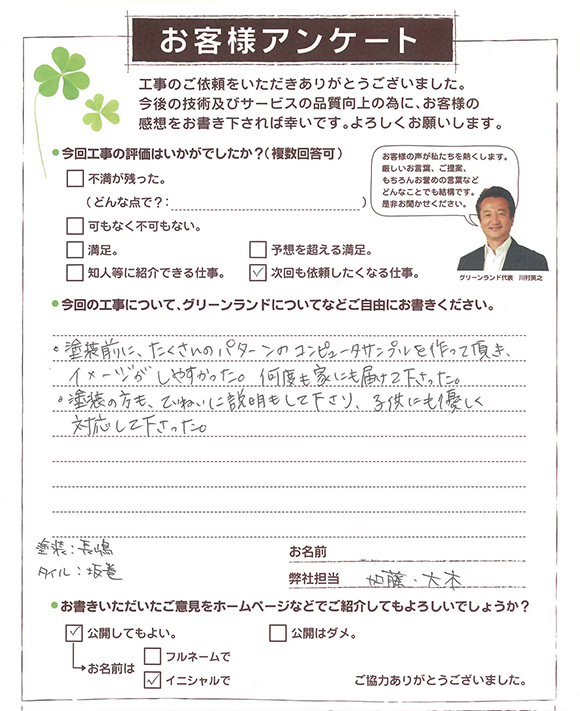 お客様アンケート
工事のご依頼をいただきありがとうございました。
今後の技術及びサービスの品質向上の為に、お客様の
感想をお書き下されば幸いです。よろしくお願いします。
●今回工事の評価はいかがでしたか?(複数回答可)
お客様の声が私たちを熱くします。
厳しいお言葉、ご提案、
もちろんお誉めの言葉など
どんなことでも結構です。
是非お聞かせください。
□ 不満が残った。
(どんな点で?: )
□ 可もなく不可もない。
□ 満足。 □ 予想を超える満足。
□ 知人等に紹介できる仕事。 ☑ 次回も依頼したくなる仕事。
グリーンランド代表 川村英之
●今回の工事について、グリーンランドについてなどご自由にお書きください。
。塗装前に、たくさんのパターンのコンピュータサンプルを作って頂き、
イメージがしやすかった。何度も家にも届けて下さった。
。塗装の方も、ていねいに説明もして下さり、子供にも優しく
対応して下さった。
塗装:長嶋
タイル:坂巻
お名前
弊社担当 加藤・大木
●お書きいただいたご意見をホームページなどでご紹介してもよろしいでしょうか?
☑ 公開してもよい。 □ 公開はダメ。
→お名前は □ フルネームで
☑ イニシャルで
ご協力ありがとうございました。